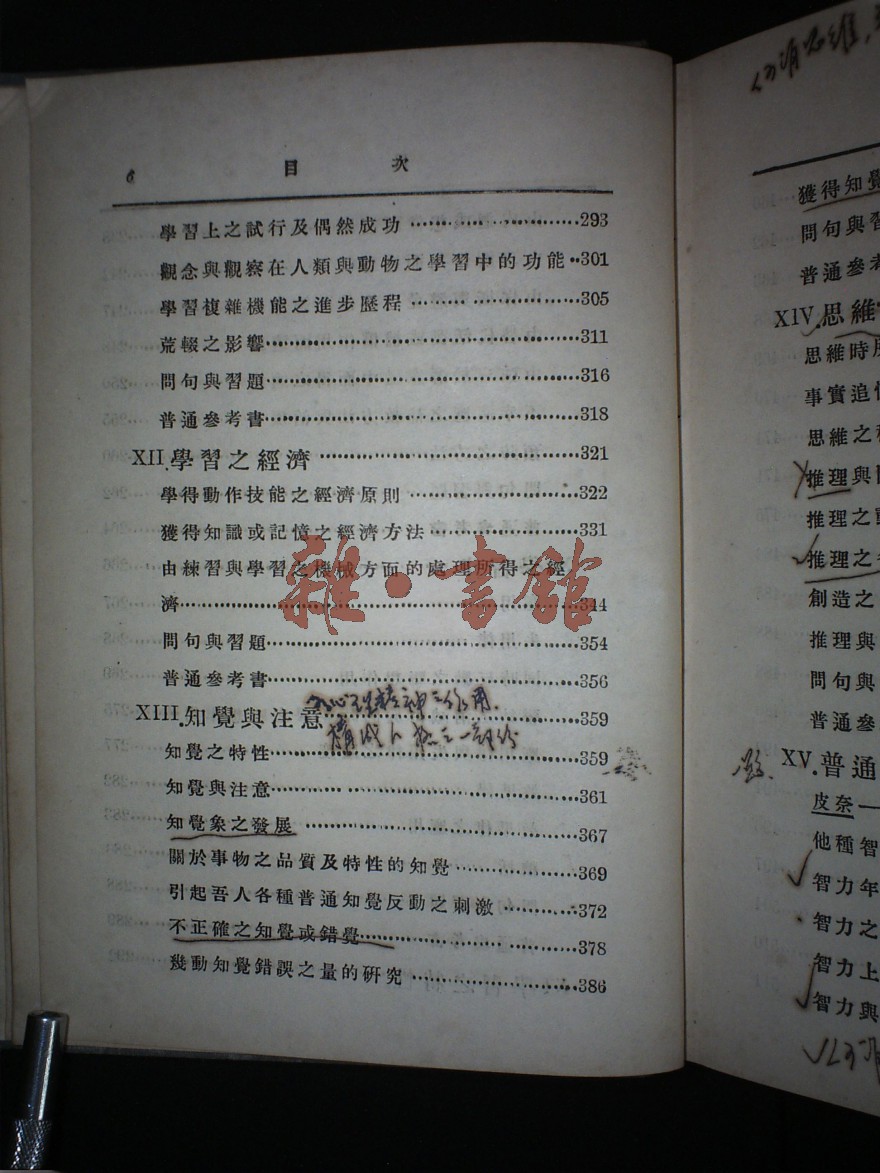 6 目 次
學習上之試行及偶然成功 ……………………293
觀念與觀察在人類與動物之學習中的功能··301
學習複雜機能之進步歷程 ··305
荒輟之影響……………………311
問句與習題……………………316
普通參考書……………………318
XII.學習之經濟……………………321
學得動作技能之經濟原則……………………322
獲得知識或記憶之經濟方法……………………331
由練習與學習之機械方面的處理所得之經
濟……………………344
問句與習題……………………354
普通參考書……………………356
XIII.知覺與注意……………………359
知覺之特性……………………359
知覺與注意……………………361
知覺象之發展……………………367
關於事物之品質及特性的知覺……………………369
引起吾人各種普通知覺反動之刺激……………………372
不正確之知覺或錯覺……………………378
幾動知覺錯誤之量的研究……………………386
雜·書館
獲得知覺
問句與習
普通參考
XIV.思維
思維時
事實追
思維之
推理與
推理之
推理之
創造之
推理與
問句與
普通參
XV.普通
皮奈一
他種智
智力年
智力之
智力上
智力與